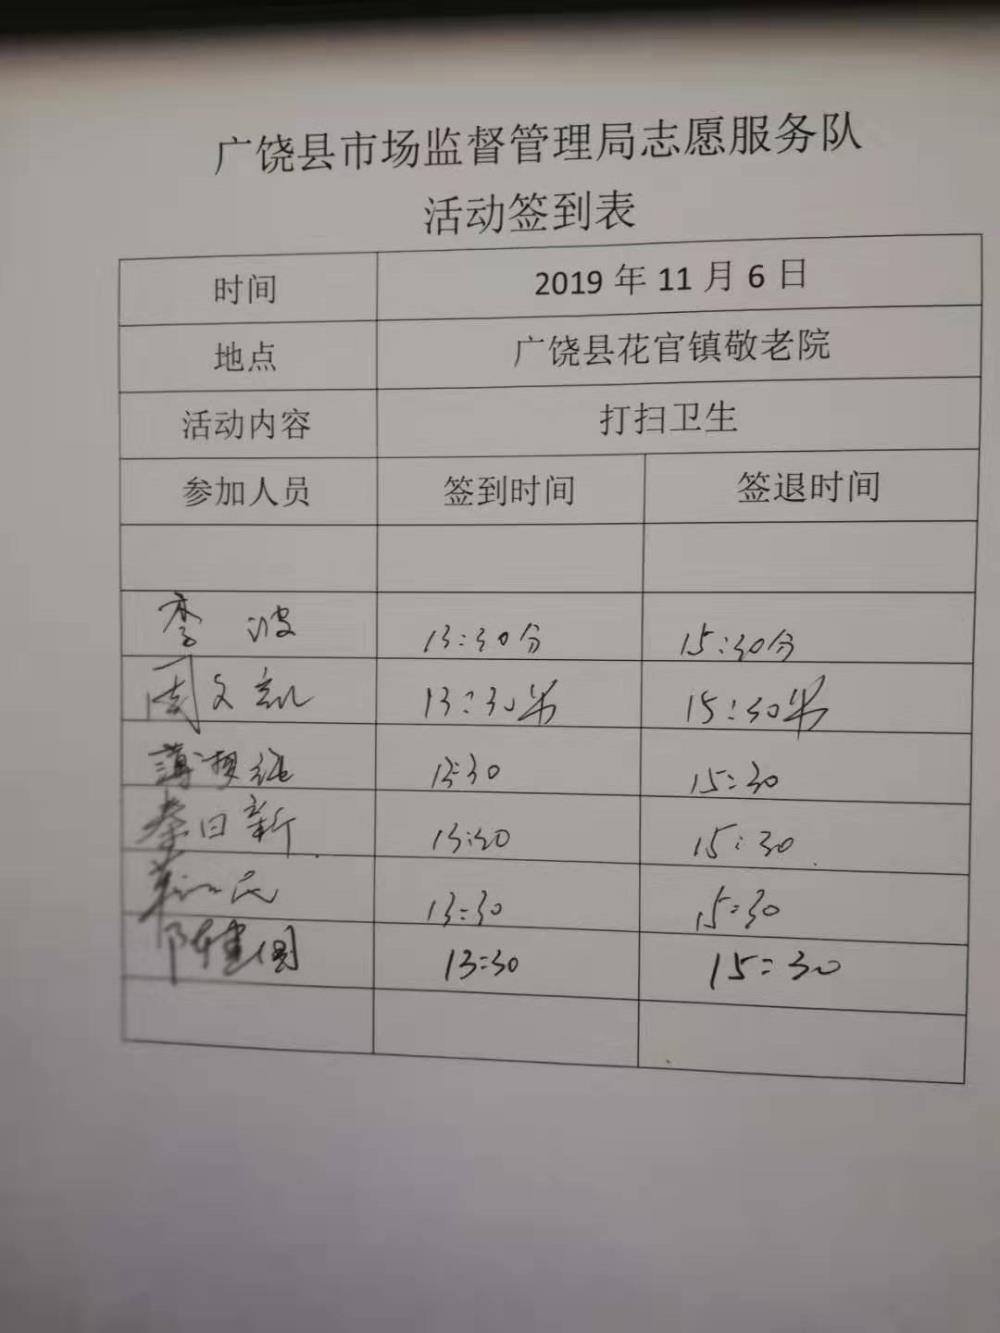 广饶县市场监督管理局志愿服务队
活动签到表
时间 2019 年 11 月 6 日
地点 广饶县花官镇敬老院
活动内容 打扫卫生
参加人员 签到时间 签退时间
李波 13:30分 15:30分
周文凯 13:30分 15:30分
13:30 15:30
秦日新 13:30 15:30
13:30 15:30
陈建国 13:30 15:30